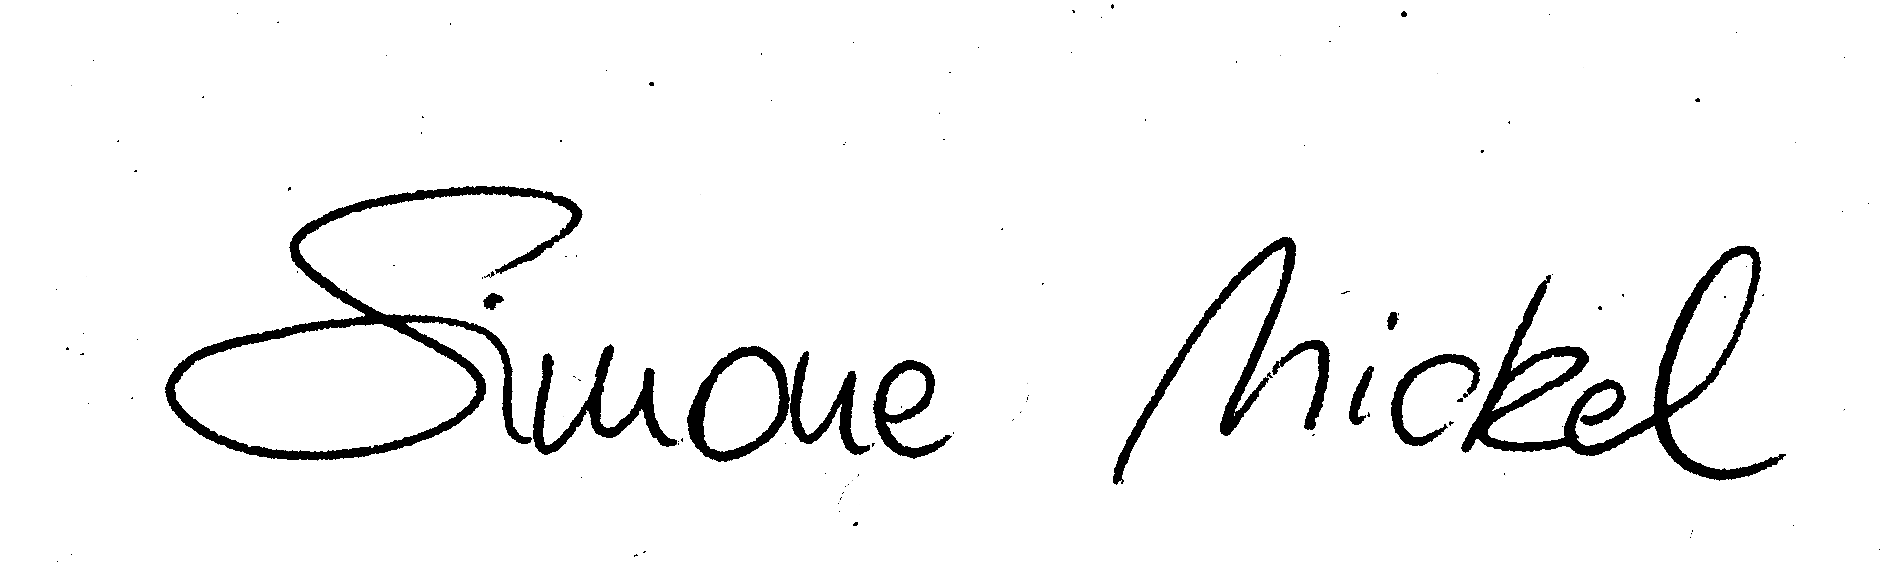 Simone Nickel